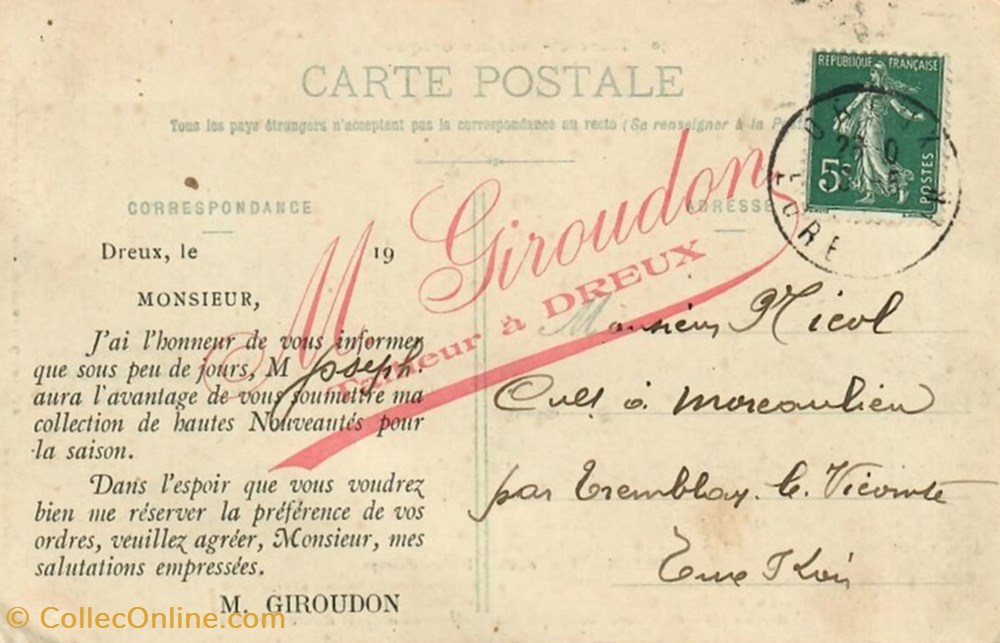 CARTE POSTALE
Tous les pays étrangers n'acceptent pas la correspondance au recto (Se renseigner à la Poste
RÉPUBLIQUE FRANÇAISE
5c
POSTES
CORRESPONDANCE
ADRESSE
M. Giroudon
Tailleur à DREUX
Dreux, le 19
MONSIEUR,
J'ai l'honneur de vous informer
que sous peu de jours, M Joseph.
aura l'avantage de vous soumettre ma
collection de hautes Nouveautés pour
la saison.
Dans l'espoir que vous voudrez
bien me réserver la préférence de vos
ordres, veuillez agréer, Monsieur, mes
salutations empressées.
M. GIROUDON
Monsieur Nicol
Cult à Moreaulieu
par Tremblay. le. Vicomte
Eure
© CollecOnline.com